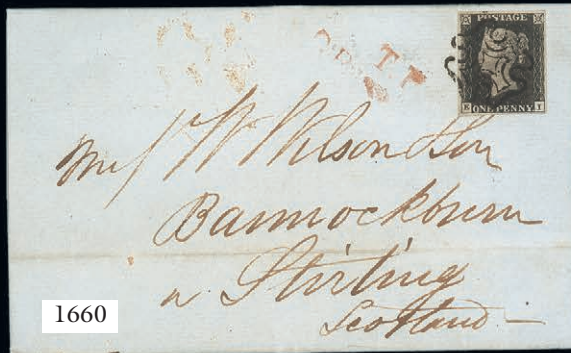 POSTAGE
ONE PENNY
Wilson & Son
Bannockburn
Stirling
Scotland
1660